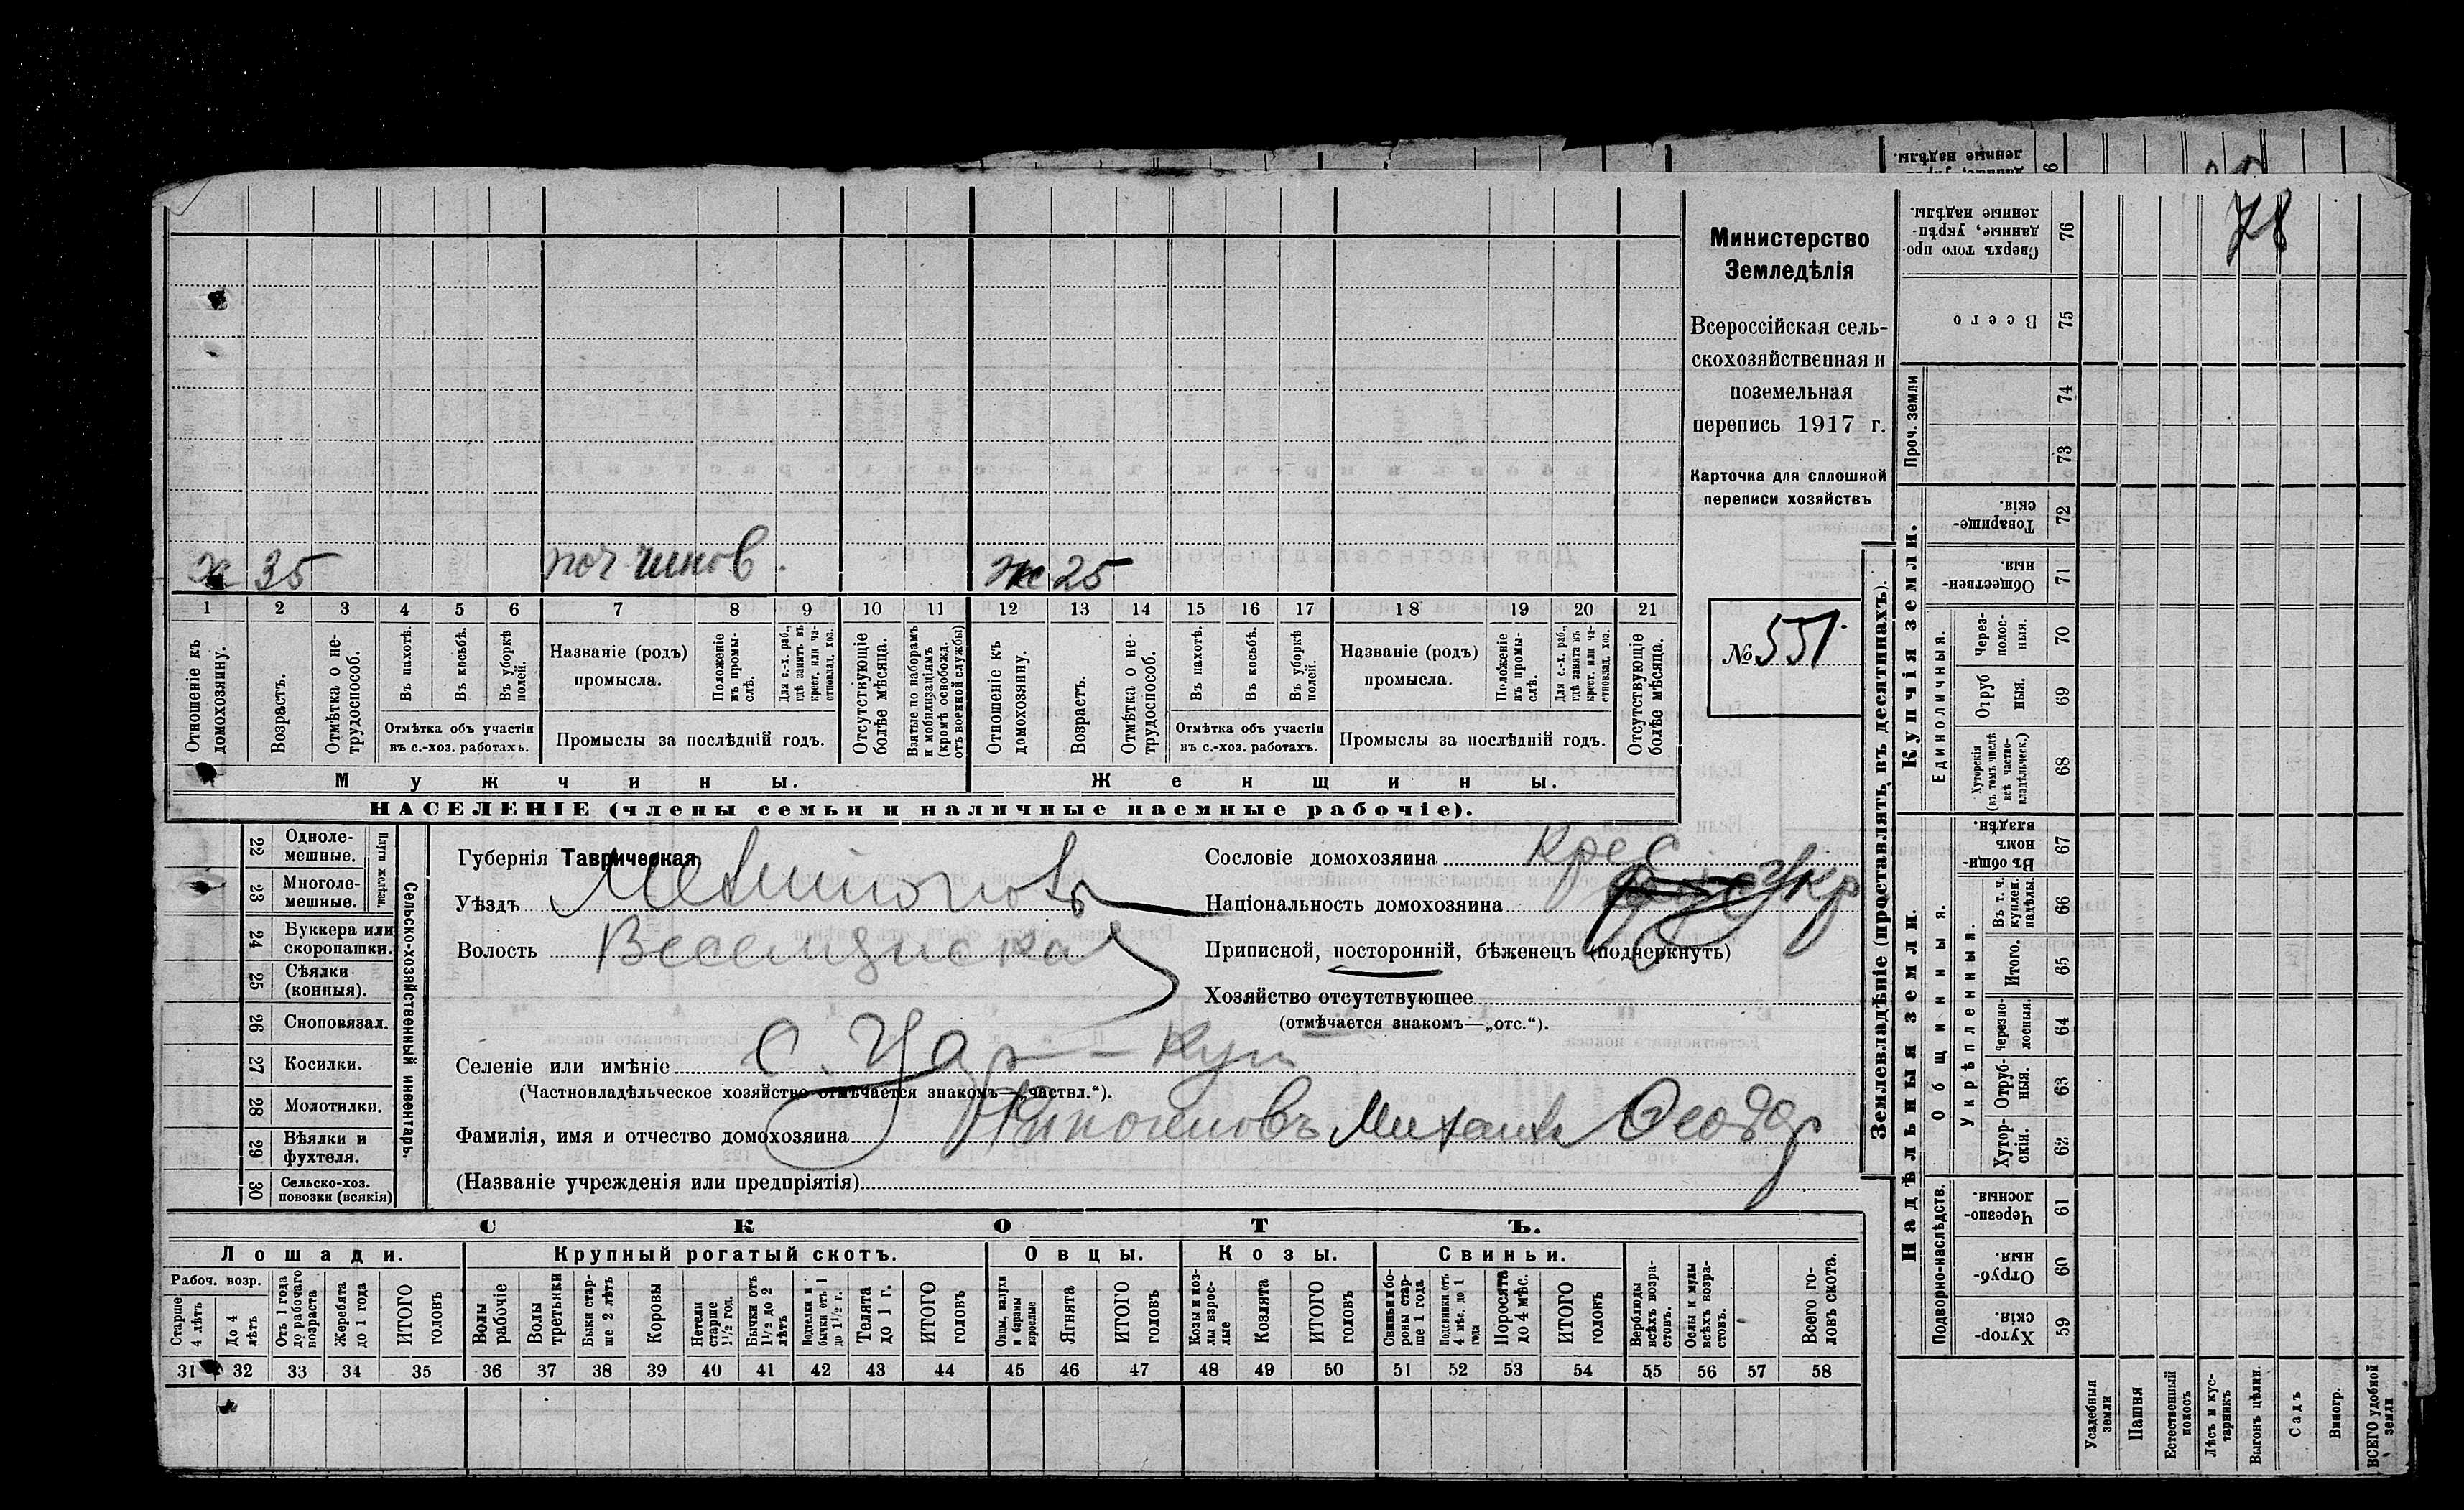 78
Министерство
Земледѣлія
Всероссійская сель-
скохозяйственная и
поземельная
перепись 1917 г.
Карточка для сплошной
переписи хозяйствъ
№ 551.
х 35 поч чинов. ж 25
1 2 3 4 5 6 7 8 9 10 11 12 13 14 15 16 17 18 19 20 21
Отношеніе къ домохозяину.
Возрастъ.
Отмѣтка о не-трудоспособ.
Въ пахотѣ.
Въ косьбѣ.
Въ уборкѣ полей.
Отмѣтка объ участіи
въ с.-хоз. работахъ.
Названіе (родъ)
промысла.
Положеніе въ промы-слѣ.
Для с.-х. раб., гдѣ занятъ въ крест. или ча-стновлад. хоз.
Промыслы за послѣдній годъ.
Отсутствующіе болѣе мѣсяца.
Взятые по наборамъ и мобилизаціямъ (кромѣ освобожд. отъ военной службы)
Отношеніе къ домохозяину.
Возрастъ.
Отмѣтка о не-трудоспособ.
Въ пахотѣ.
Въ косьбѣ.
Въ уборкѣ полей.
Отмѣтка объ участіи
въ с.-хоз. работахъ.
Названіе (родъ)
промысла.
Положеніе въ промы-слѣ.
Для с.-х. раб., гдѣ занята въ крест. или ча-стновлад. хоз.
Промыслы за послѣдній годъ.
Отсутствующіе болѣе мѣсяца.
Мужчины. Женщины.
НАСЕЛЕНІЕ (члены семьи и наличные наемные рабочіе).
22 Одноле-мешные.
23 Многоле-мешные.
Плуги желѣзн.
24 Буккера или скоропашки.
25 Сѣялки (конныя).
26 Сноповязал.
27 Косилки.
28 Молотилки.
29 Вѣялки и фухтеля.
30 Сельско-хоз. повозки (всякія)
Сельско-хозяйственный инвентарь.
Губернія Таврическая.
Уѣздъ
Волость
Селеніе или имѣніе
(Частновладѣльческое хозяйство отмѣчается знакомъ—„частвл.“).
Фамилія, имя и отчество домохозяина Михаилъ Ѳеодор
(Названіе учрежденія или предпріятія)
Сословіе домохозяина Крес
Національность домохозяина Укр
Приписной, посторонній, бѣженецъ (подчеркнуть)
Хозяйство отсутствующее
(отмѣчается знакомъ—„отс.“).
СКОТЪ.
Лошади. Крупный рогатый скотъ. Овцы. Козы. Свиньи.
Рабоч. возр.
Старше 4 лѣтъ
До 4 лѣтъ
Отъ 1 года до рабочаго возраста
Жеребята до 1 года
ИТОГО головъ
Волы рабочіе
Волы третьяки
Быки стар-ше 2 лѣтъ
Коровы
Нетели старше 1½ год.
Бычки отъ 1½ до 2 лѣтъ
Подтелки и бычки отъ 1 до 1½ г.
Телята до 1 г.
ИТОГО головъ
Овцы, валухи и бараны взрослые
Ягнята
ИТОГО головъ
Козы и коз-лы взрос-лые
Козлята
ИТОГО головъ
Свиньи и бо-ровы стар-ше 1 года
Подсвинки отъ 4 мѣс. до 1 года
Поросята до 4 мѣс.
ИТОГО головъ
Верблюды всѣхъ возра-стовъ.
Ослы и мулы всѣхъ возра-стовъ.
Всего го-ловъ скота.
31 32 33 34 35 36 37 38 39 40 41 42 43 44 45 46 47 48 49 50 51 52 53 54 55 56 57 58
Землевладѣніе (проставлять въ десятинахъ).
Надѣльныя земли. Купчія земли. Проч. земли
Подворно-наслѣдств.
Общинныя.
Укрѣпленныя.
Единоличныя.
59 Хутор-скія.
60 Отруб-ныя.
61 Черезпо-лосныя.
62 Хутор-скія.
63 Отруб-ныя.
64 Черезпо-лосныя.
65 Итого.
66 Въ т. ч. куплен. надѣлы.
67 Въ общи-номъ владѣн.
68 Хуторскія (въ томъ числѣ всѣ частно-владѣльческ.)
69 Отруб ныя.
70 Через-полос-ныя.
71 Обществен-ныя.
72 Товарище-скія.
73
74
75 Всего
76 Сверхъ того про-данные, укрѣп-ленные надѣлы.
Усадебныя земли
Пашня
Естественный покосъ
Лѣсъ и кус-тарникъ
Выгонъ цѣлин.
Садъ
Виногр.
ВСЕГО удобной земли